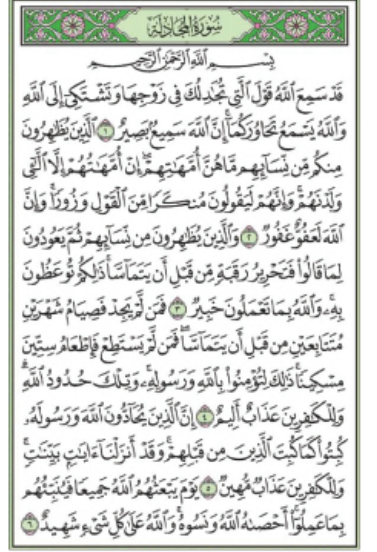 سُورَةُ المُجَادلَة
بِسْمِ اللَّهِ الرَّحْمَٰنِ الرَّحِيمِ
قَدْ سَمِعَ اللَّهُ قَوْلَ الَّتِي تُجَٰدِلُكَ فِي زَوْجِهَا وَتَشْتَكِي إِلَى اللَّهِ
وَاللَّهُ يَسْمَعُ تَحَاوُرَكُمَا إِنَّ اللَّهَ سَمِيعٌ بَصِيرٌ ١ الَّذِينَ يُظَٰهِرُونَ
مِنكُم مِّن نِّسَائِهِم مَّا هُنَّ أُمَّهَٰتِهِمْ إِنْ أُمَّهَٰتُهُمْ إِلَّا الَّٰٓـِٔي
وَلَدْنَهُمْ وَإِنَّهُمْ لَيَقُولُونَ مُنكَرًا مِّنَ الْقَوْلِ وَزُورًا وَإِنَّ
اللَّهَ لَعَفُوٌّ غَفُورٌ ٢ وَالَّذِينَ يُظَٰهِرُونَ مِن نِّسَائِهِمْ ثُمَّ يَعُودُونَ
لِمَا قَالُوا فَتَحْرِيرُ رَقَبَةٍ مِّن قَبْلِ أَن يَتَمَاسَّا ذَٰلِكُمْ تُوعَظُونَ
بِهِ وَاللَّهُ بِمَا تَعْمَلُونَ خَبِيرٌ ٣ فَمَن لَّمْ يَجِدْ فَصِيَامُ شَهْرَيْنِ
مُتَتَابِعَيْنِ مِن قَبْلِ أَن يَتَمَاسَّا فَمَن لَّمْ يَسْتَطِعْ فَإِطْعَامُ سِتِّينَ
مِسْكِينًا ذَٰلِكَ لِتُؤْمِنُوا بِاللَّهِ وَرَسُولِهِ وَتِلْكَ حُدُودُ اللَّهِ
وَلِلْكَٰفِرِينَ عَذَابٌ أَلِيمٌ ٤ إِنَّ الَّذِينَ يُحَادُّونَ اللَّهَ وَرَسُولَهُ
كُبِتُوا كَمَا كُبِتَ الَّذِينَ مِن قَبْلِهِمْ وَقَدْ أَنزَلْنَا ءَايَٰتٍ بَيِّنَٰتٍ
وَلِلْكَٰفِرِينَ عَذَابٌ مُّهِينٌ ٥ يَوْمَ يَبْعَثُهُمُ اللَّهُ جَمِيعًا فَيُنَبِّئُهُم
بِمَا عَمِلُوا أَحْصَىٰهُ اللَّهُ وَنَسُوهُ وَاللَّهُ عَلَىٰ كُلِّ شَيْءٍ شَهِيدٌ ٦